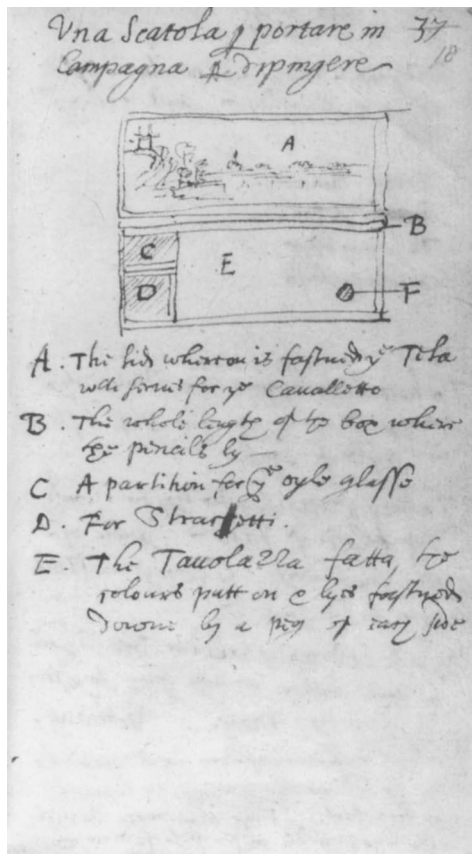 Una Scatola p portare in 37
Campagna A dipingere 18
A
B
C
E
D
F
A. The lid whereon is fastned yͤ Tela
wch serves for yͤ Cavalletto
B. The whole length of the box where
the pencils ly
C A partition for yͤ oyle glasse
D. For Stracetti.
E. The Tavolazza fatta, the
colours putt on & lyes fastned
downe by a peg of each side